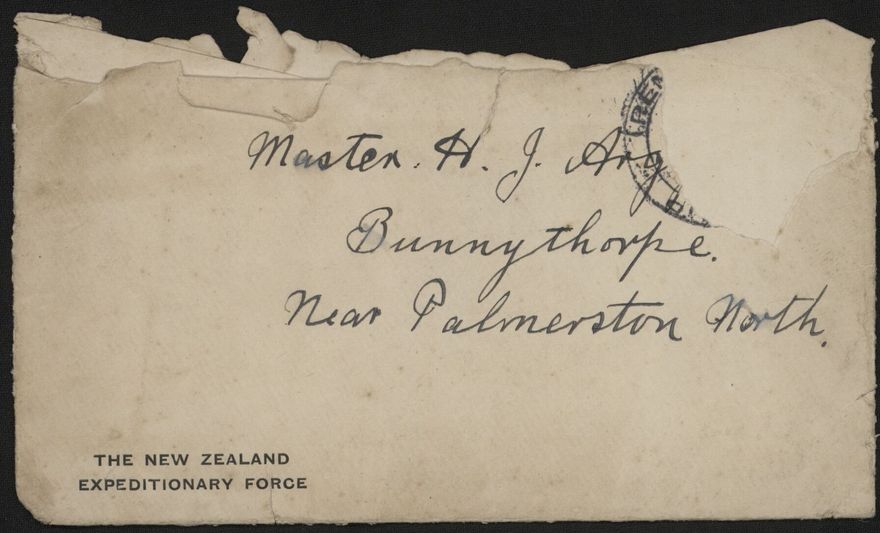 Master. H. J. Arg
Bunnythorpe.
Near Palmerston North.
THE NEW ZEALAND
EXPEDITIONARY FORCE